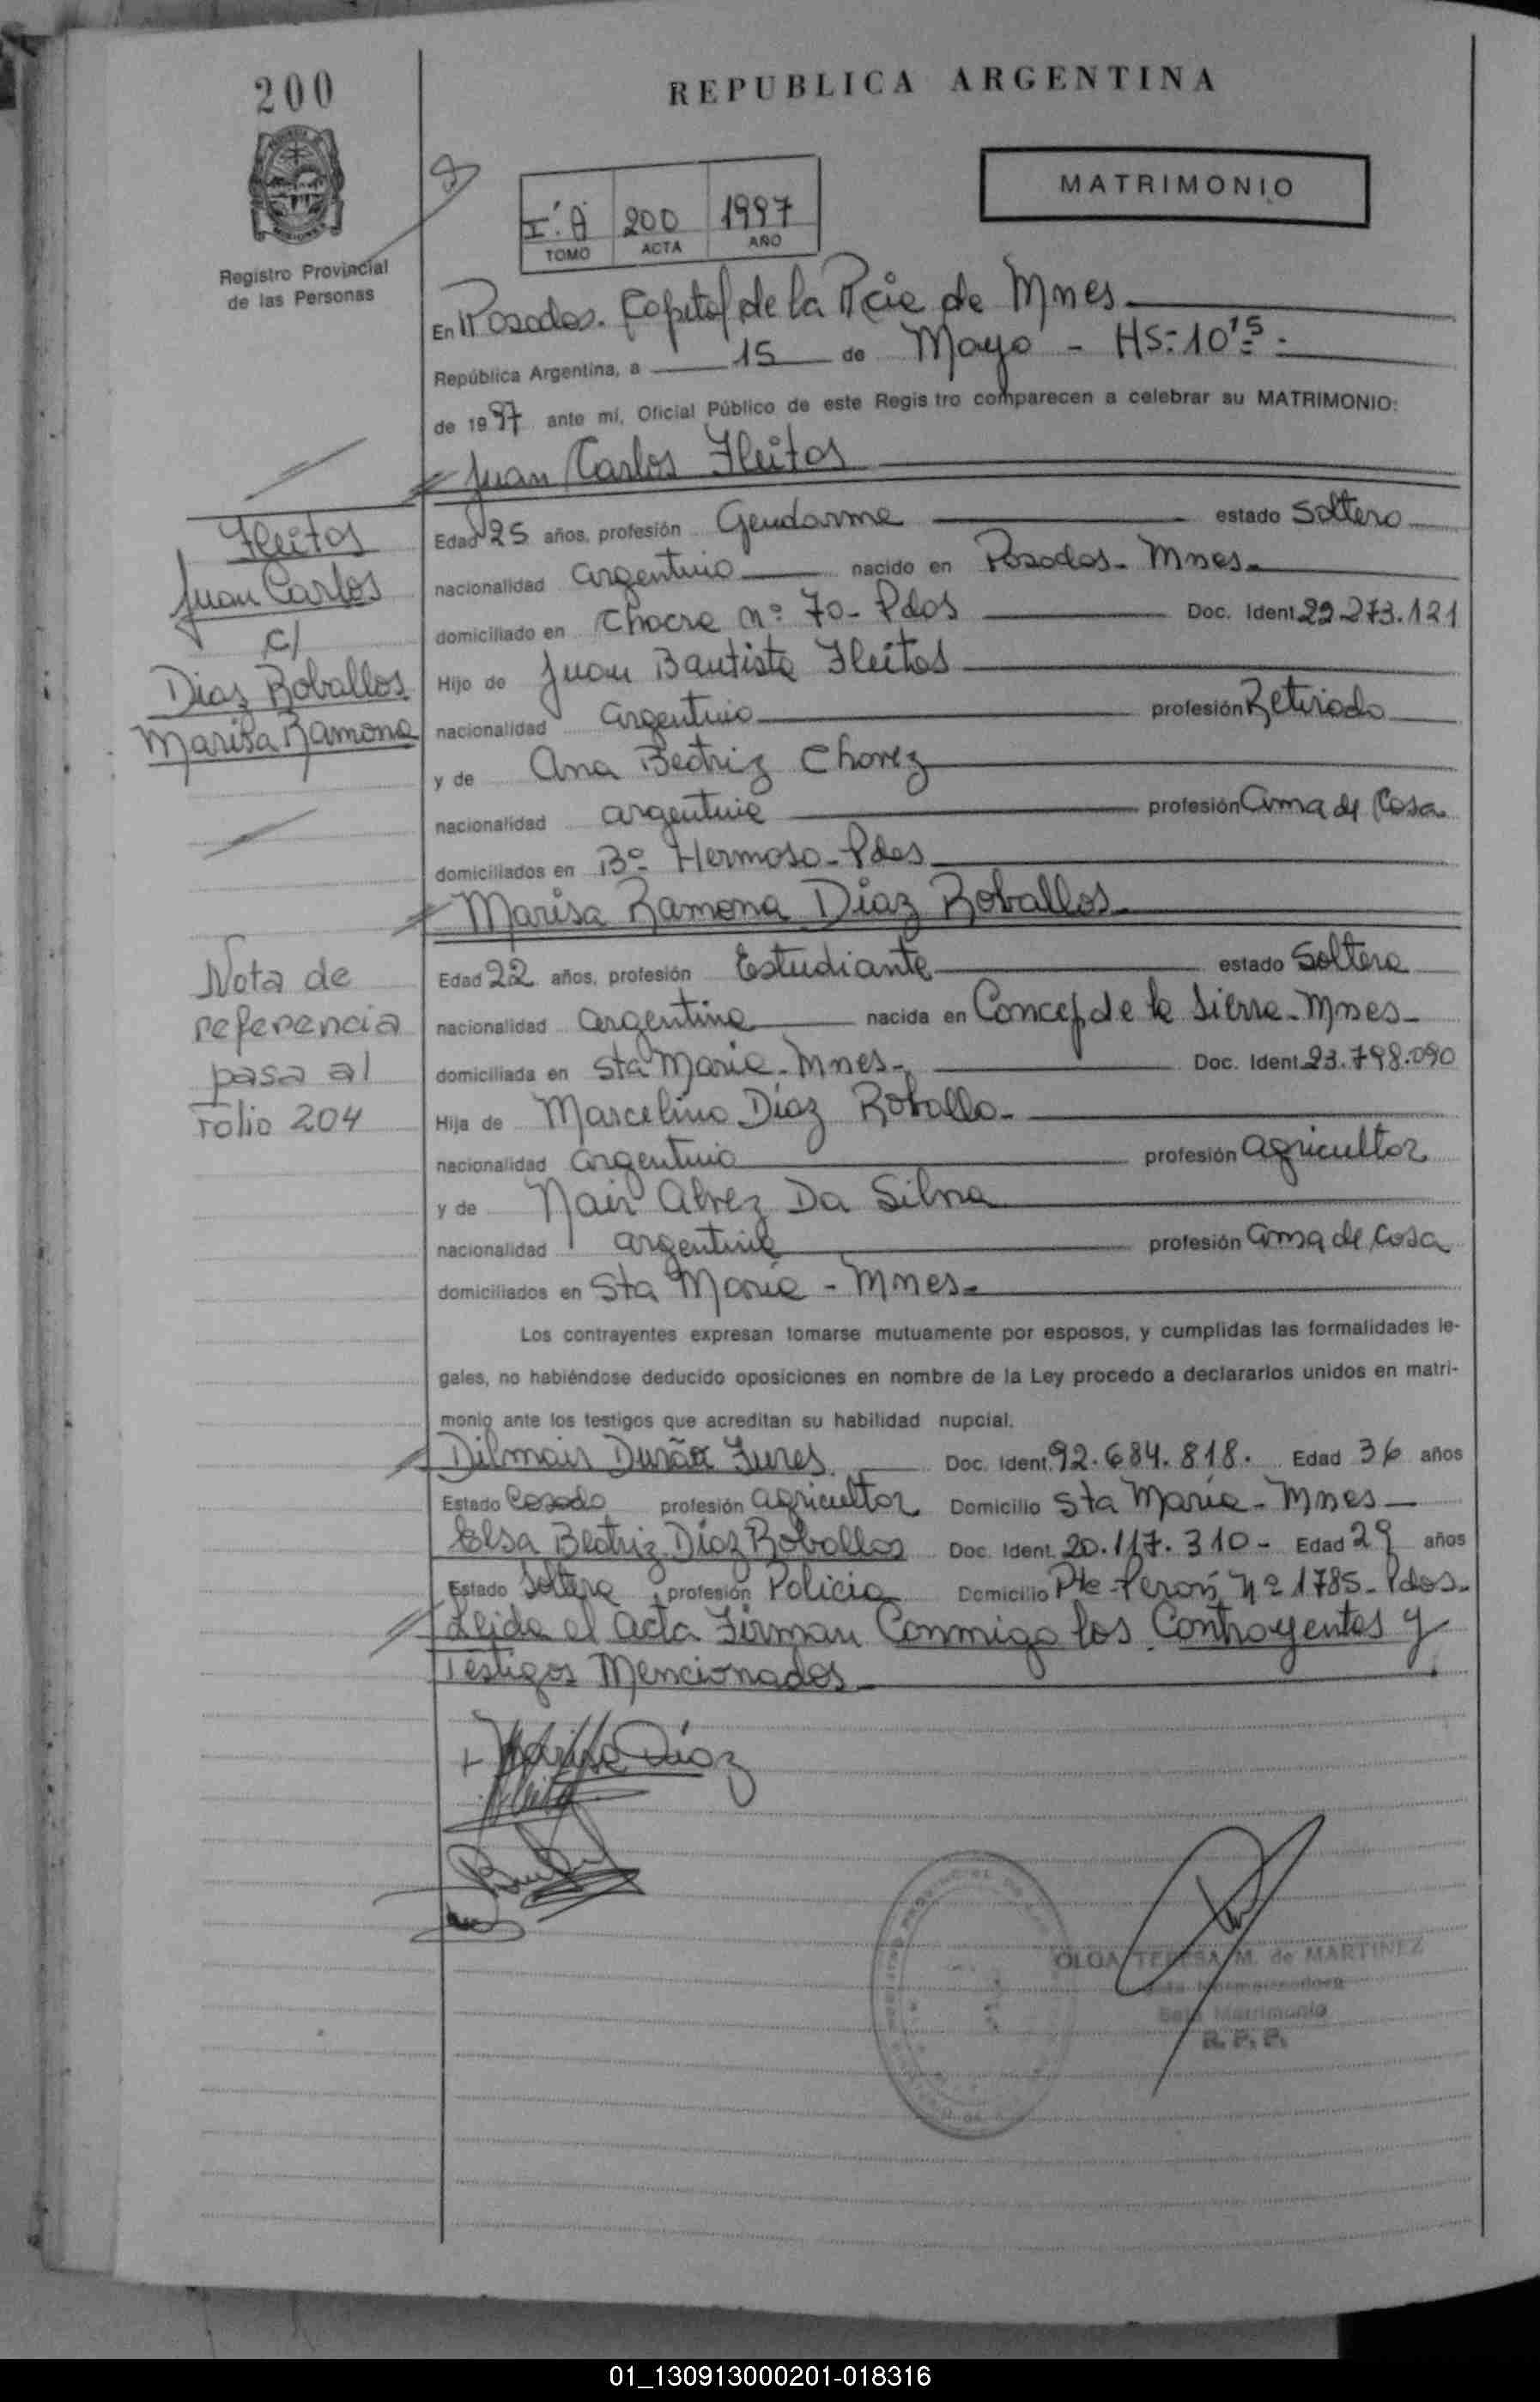 200
REPUBLICA ARGENTINA
MATRIMONIO
I. A 200 1997
TOMO ACTA AÑO
Registro Provincial
de las Personas
En Posadas. Capital de la Pcia de Mnes
República Argentina, a 15 de Mayo - HS: 10 15
de 1997 ante mí, Oficial Público de este Registro comparecen a celebrar su MATRIMONIO:
Juan Carlos Fleitas
Edad 25 años, profesión Gendarme estado Soltero
nacionalidad argentino nacido en Posadas - Mnes
domiciliado en Chacra nº 70 - Pdas Doc. Ident. 22.273.121
Hijo de Juan Bautista Fleitas
nacionalidad argentino profesión Retirado
y de Ana Beatriz Chavez
nacionalidad argentina profesión ama de Casa
domiciliados en Bº Hermoso - Pdas
Marisa Ramona Díaz Roballos
Edad 22 años, profesión Estudiante estado Soltera
nacionalidad argentina nacida en Concep de la Sierra - Mnes -
domiciliada en Sta María - Mnes - Doc. Ident. 23.798.090
Hija de Marcelino Díaz Roballo -
nacionalidad argentino profesión agricultor
y de Nair Alvez Da Silva
nacionalidad argentina profesión ama de casa
domiciliados en Sta María - Mnes -
Los contrayentes expresan tomarse mutuamente por esposos, y cumplidas las formalidades le-
gales, no habiéndose deducido oposiciones en nombre de la Ley procedo a declararlos unidos en matri-
monio ante los testigos que acreditan su habilidad nupcial.
Dilmair Durão Doc. Ident. 92.684.818. Edad 36 años
Estado Casado profesión agricultor Domicilio Sta María - Mnes
Elsa Beatriz Díaz Roballos Doc. Ident. 20.117.310 - Edad 29 años
Estado Soltera profesión Policía Domicilio Pte Perón Nº 1785 - Pdas -
Leida el acta Firman Conmigo los Contrayentes y
Testigos Mencionados
Fleitas
Juan Carlos
c/
Diaz Roballos
Marisa Ramona
Nota de
referencia
pasa al
Folio 204
Marisa Díaz
OLGA TERESA M. de MARTINEZ
Matrimonio
R. P. P.
01_130913000201-018316